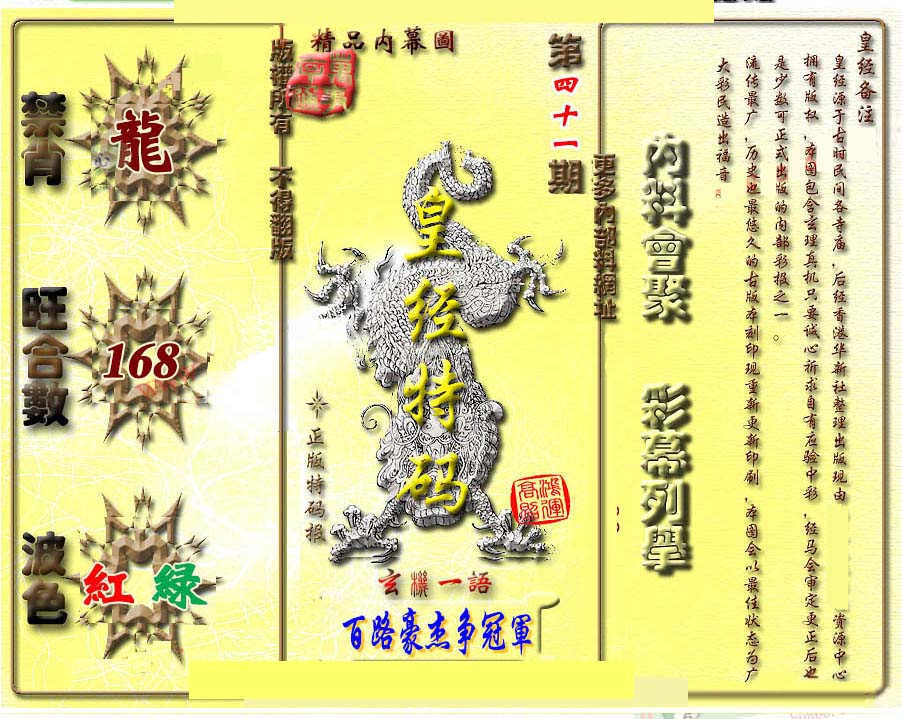 皇经备注
皇经源于古时民间各寺庙,后经香港华新社整理出版现由 资源中心
拥有版权,本图包含玄理真机只要诚心祈求自有应验中彩,经马会审定更正后也
是少数可正式出版的内部彩报之一。
流传最广,历史也最悠久的古版本刻印现重新更新印刷,本图会以最佳状态为广
大彩民造出福音
內料會聚
彩幕列舉
更多內部料網址
第四十一期
精品內幕圖
皇经特码
正版特码报
鴻運
高照
玄機一語
百路豪杰争冠軍
版權所有 不得翻版
禁肖
龍
旺合數
168
波色
紅 綠